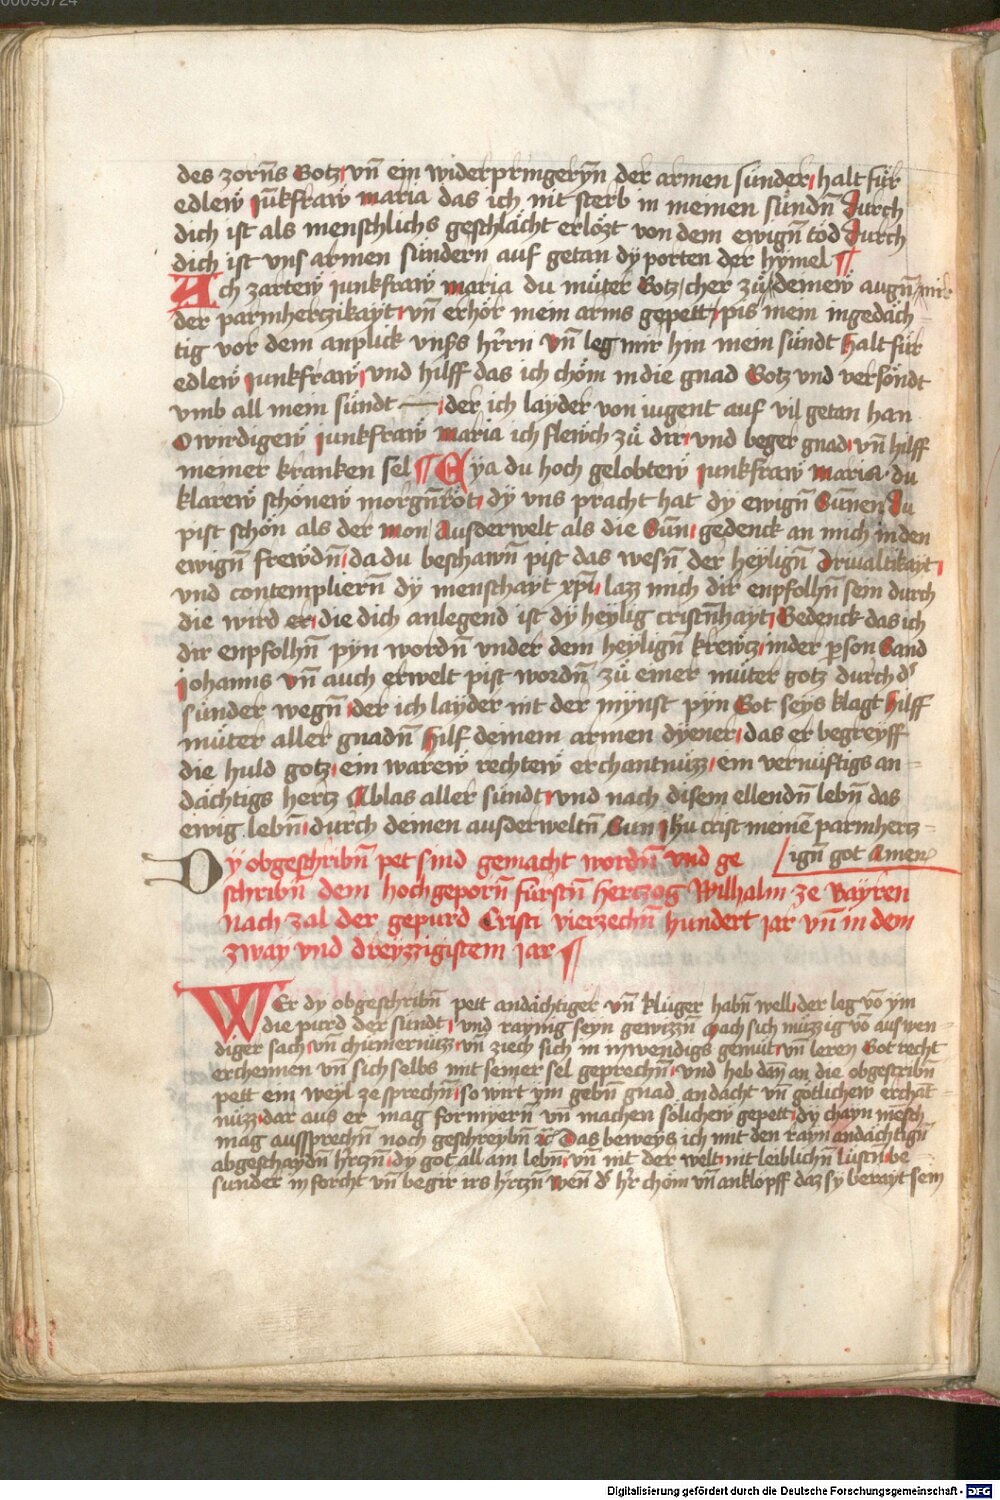 des zorns̄ Gotz vn̄ ein widerpringeryn̄ der armen sünder halt für
edlew̋ junkfraw̋ maria das ich nit sterb in meinen sündn̄ durch
dich ist als menschlichs geschlächt erlözt von dem ewign̄ töd durch
dich ist vns armen sündern auf getan dy porten der hymel ¶
Ach zartew̋ junkfraw̋ maria du müter Gotz cher zü deinew̋ augn̄ mir
der parmhertzikayt vn̄ erhör mein arms gepett pis mein ingedäch-
tig vor dem anplick vnsers hr̄rn vn̄ leg mir hin mein sündt halt für
edlew̋ junkfraw̋ vnd hilff das ich chöm in die gnad Gotz vnd versöndt
vmb all mein sündt — der ich layder von iugent auf vil getan han
O wirdigew̋ junkfraw̋ maria ich flewch zü dir vnd beger gnad vn̄ hilff
meiner kranken sel ¶ Eya du hoch gelobtew̋ junkfraw̋ maria du
klarew̋ schönew̋ morgn̄röt dy vns pracht hat dy ewign̄ Sunnen du
pist schön als der mon ausderwelt als die Sun̄ gedenck an mich in den
ewign̄ frewdn̄ da du beschawn̄ pist das wesn̄ der heyligñ drivaltikayt
vnd contempliern̄ dy menschayt xp̄i lazz mich dir enpfolhn̄ sein durch
die wird er die dich anlegend ist dy heylig cristn̄hayt Gedenck das ich
dir enpfolhn̄ pyn wordn̄ vnder dem heylign̄ krewtz in der p̄son Sand
johanns vn̄ auch erwelt pist wordn̄ zü einer müter gotz durch dʼ
sünder wegn̄ der ich layder nit der mynst pyn Got seys klagt hilff
müter aller gnadn̄ hilf deinem armen dyener das er begreyff
die huld gotz ein warew̋ rechtew̋ erchantnüzz ein vernüftigs an-
dächtigs hertz Ablas aller sündt vnd nach disem ellendn̄ lebn̄ das
ewig lebn̄ durch deinen ausderweltn̄ Sun Jhū crist meinē parmhertz-
ign̄ got Amen
Dy obgeschribn̄ pet sind gemacht wordn̄ vnd ge
schribn̄ dem hochgeporn̄ fürstn̄ hertzog Wilhalm ze Bayren
nach zal der gepurd Cristi vierzechn̄ hundert jar vn̄ in dem
zway vnd dreyzzigistem jar ¶
WEr dy obgeschribn̄ pett andächtiger vn̄ klüger habn̄ well der leg vō ym
die pürd der sündt vnd raynig seyn gewizzn̄ Mach sich müzzig vō auswen-
diger sach vn̄ chümernüzz vn̄ ziech sich in inwendigs gemüt vn̄ leren Got recht
erchennen vn̄ sich selbs mit seiner sel geprechn̄ vnd heb dan̄ an die obgescribn̄
pett ein weyl ze sprechn̄ so wirt ym gebn̄ gnad andacht vn̄ götlichew erchāt-
nüzz dar aus er mag formyern̄ vn̄ machen sölichew gepett dy chayn mēsch
mag aussprechn̄ noch geschreybn̄ ꝛc̄ Das beweys ich mit den rayn andächtign̄
abgeschaydn̄ h̄rczn̄ dy got all ain lebn̄ vn̄ nit der welt mit leiblichn̄ lüstn̄ be
sunder in forcht vn̄ begir irs h̄rczn̄ wen̄ dʼ h̄r chöm vn̄ anklopff daz sy berayt sein
Digitalisierung gefördert durch die Deutsche Forschungsgemeinschaft - DFG